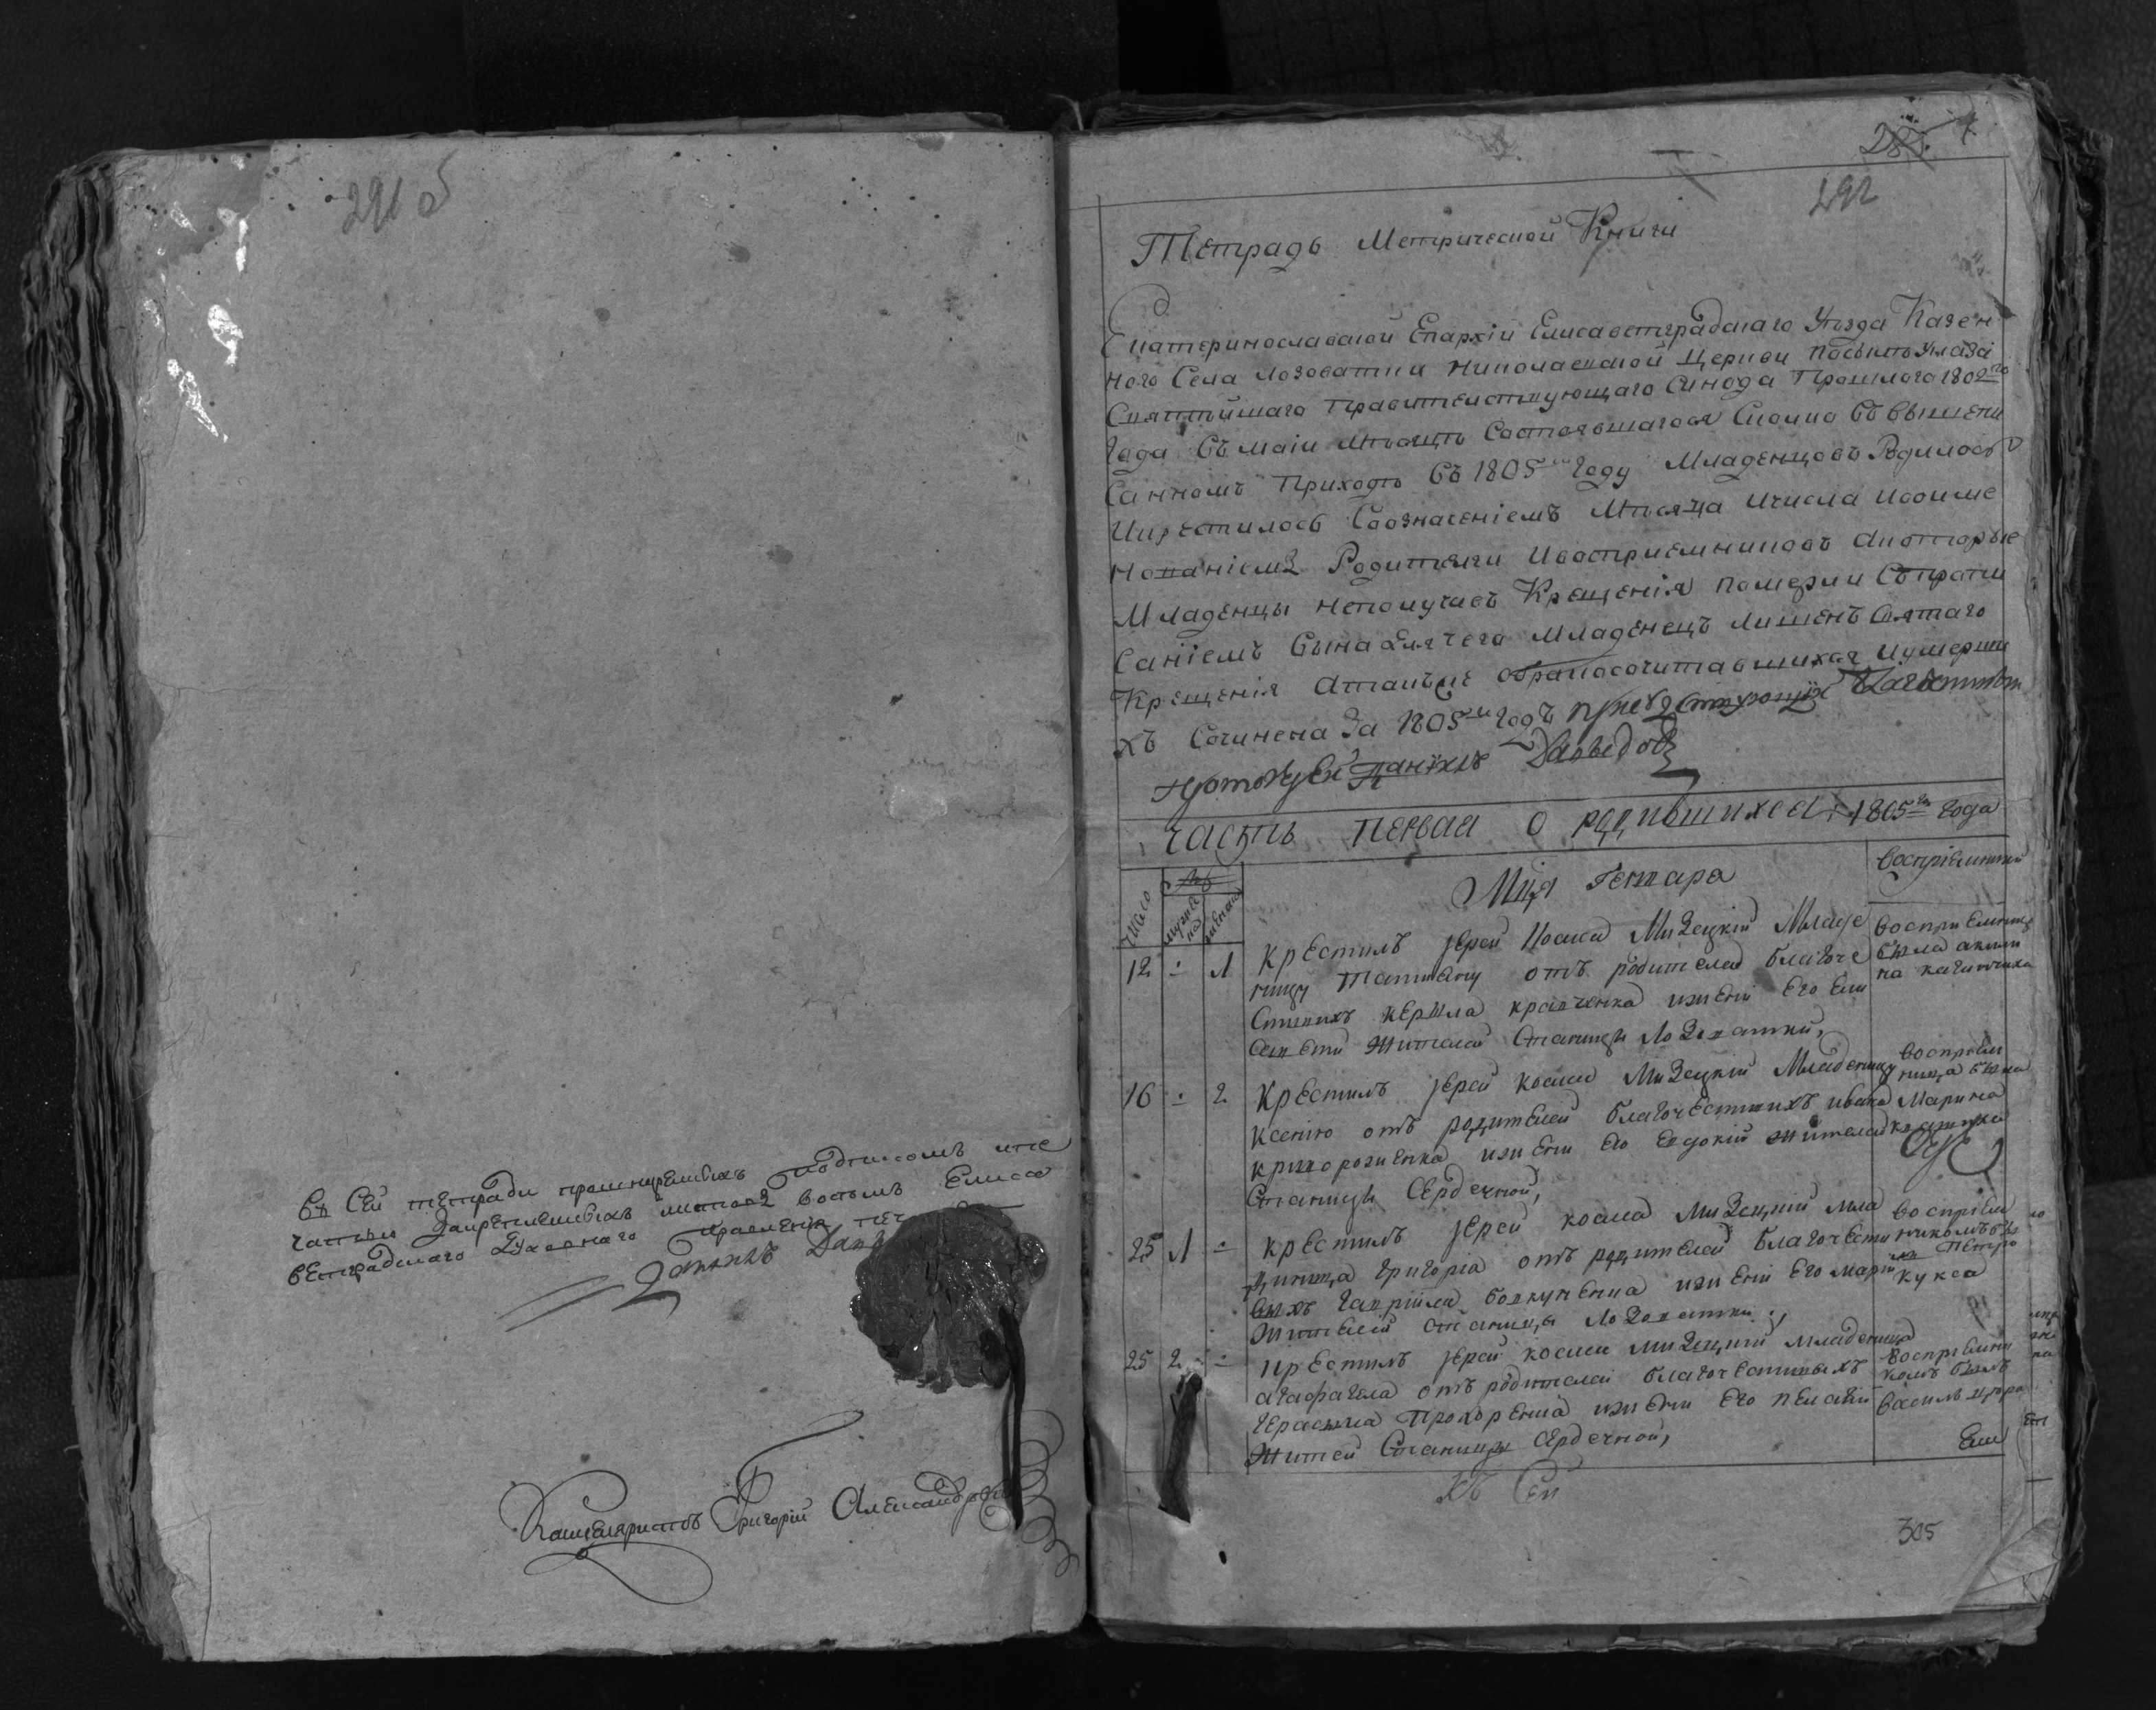 291 об
Въ сей тетради прошнуренныхъ подписомъ ипе
чатью закрепленныхъ листовъ восьмъ Елиса
ветградскаго Духовнаго правленія печ
Даніилъ Дав
Канцеляристъ Григорій Александров
292
Тетрадь Метрической Книги
Екатеринославской Епархіи Елисаветградскаго Уѣзда Казен
ного Села Лозоватки Николаевской Церкви посилѣ Указа
Святѣйшаго Правителствующаго Синода Прошлого 1802го
Года Въ маіи мѣсяцѣ Состоявшагося Сколко Въ вышепи
Санномъ Приходѣ Въ 1805м Году Младенцовъ Родилось
Икрестилось Созначеніемъ Мѣсяца Ичисла Исоиме
нованіемъ Родителей Ивосприемниковъ Акоторые
Младенцы неполучивъ Крещенія померли Съпропи
Саніемъ Вына Длячего Младенецъ Лишенъ Святаго
Крещенія Атакъже Обракосочитавшихся Иумерши
хъ Сочинена За 1805й Годъ присудствующій Благочинный
протоіерей Даніилъ Давыдовъ
часть первая о родившихся: 1805го Года
число
мужеска
женска
Мця Генваря
воспріемники
12 : 1
крестилъ іерей Косма Мизецкій Младе
ницу Татияну отъ родителей благоче
стивихъ кирила кравченка ижени его Ели
саветы жителей Станицы Лозоватки,
восприемница
была акили
на калиничиха
16 : 2
Крестилъ іерей косма Мизецкій Младеницу
ксенію отъ родителей благочестивихъ ивана
криворогченка ижени его Евдокіи жителей
Станицы Сердечной,
воспріем
ница была
Марина
25 1 :
крестилъ іерей косма Мизецкій мла
динца григорія отъ родителей благочести
выхъ гавріила бовкуненка ижени его маріи
жителей станицы Лозоватки,
воспріем
никомъ бы
лъ петро
кукса
25 2 :
крестилъ іерей косма мизецкій младенца
агафагела отъ родителей благочестивыхъ
герасима Прохоренка ижени его пелагіи
жителей Станицы Сердечной,
воспріемни
комъ былъ
василь
къ Сей
305